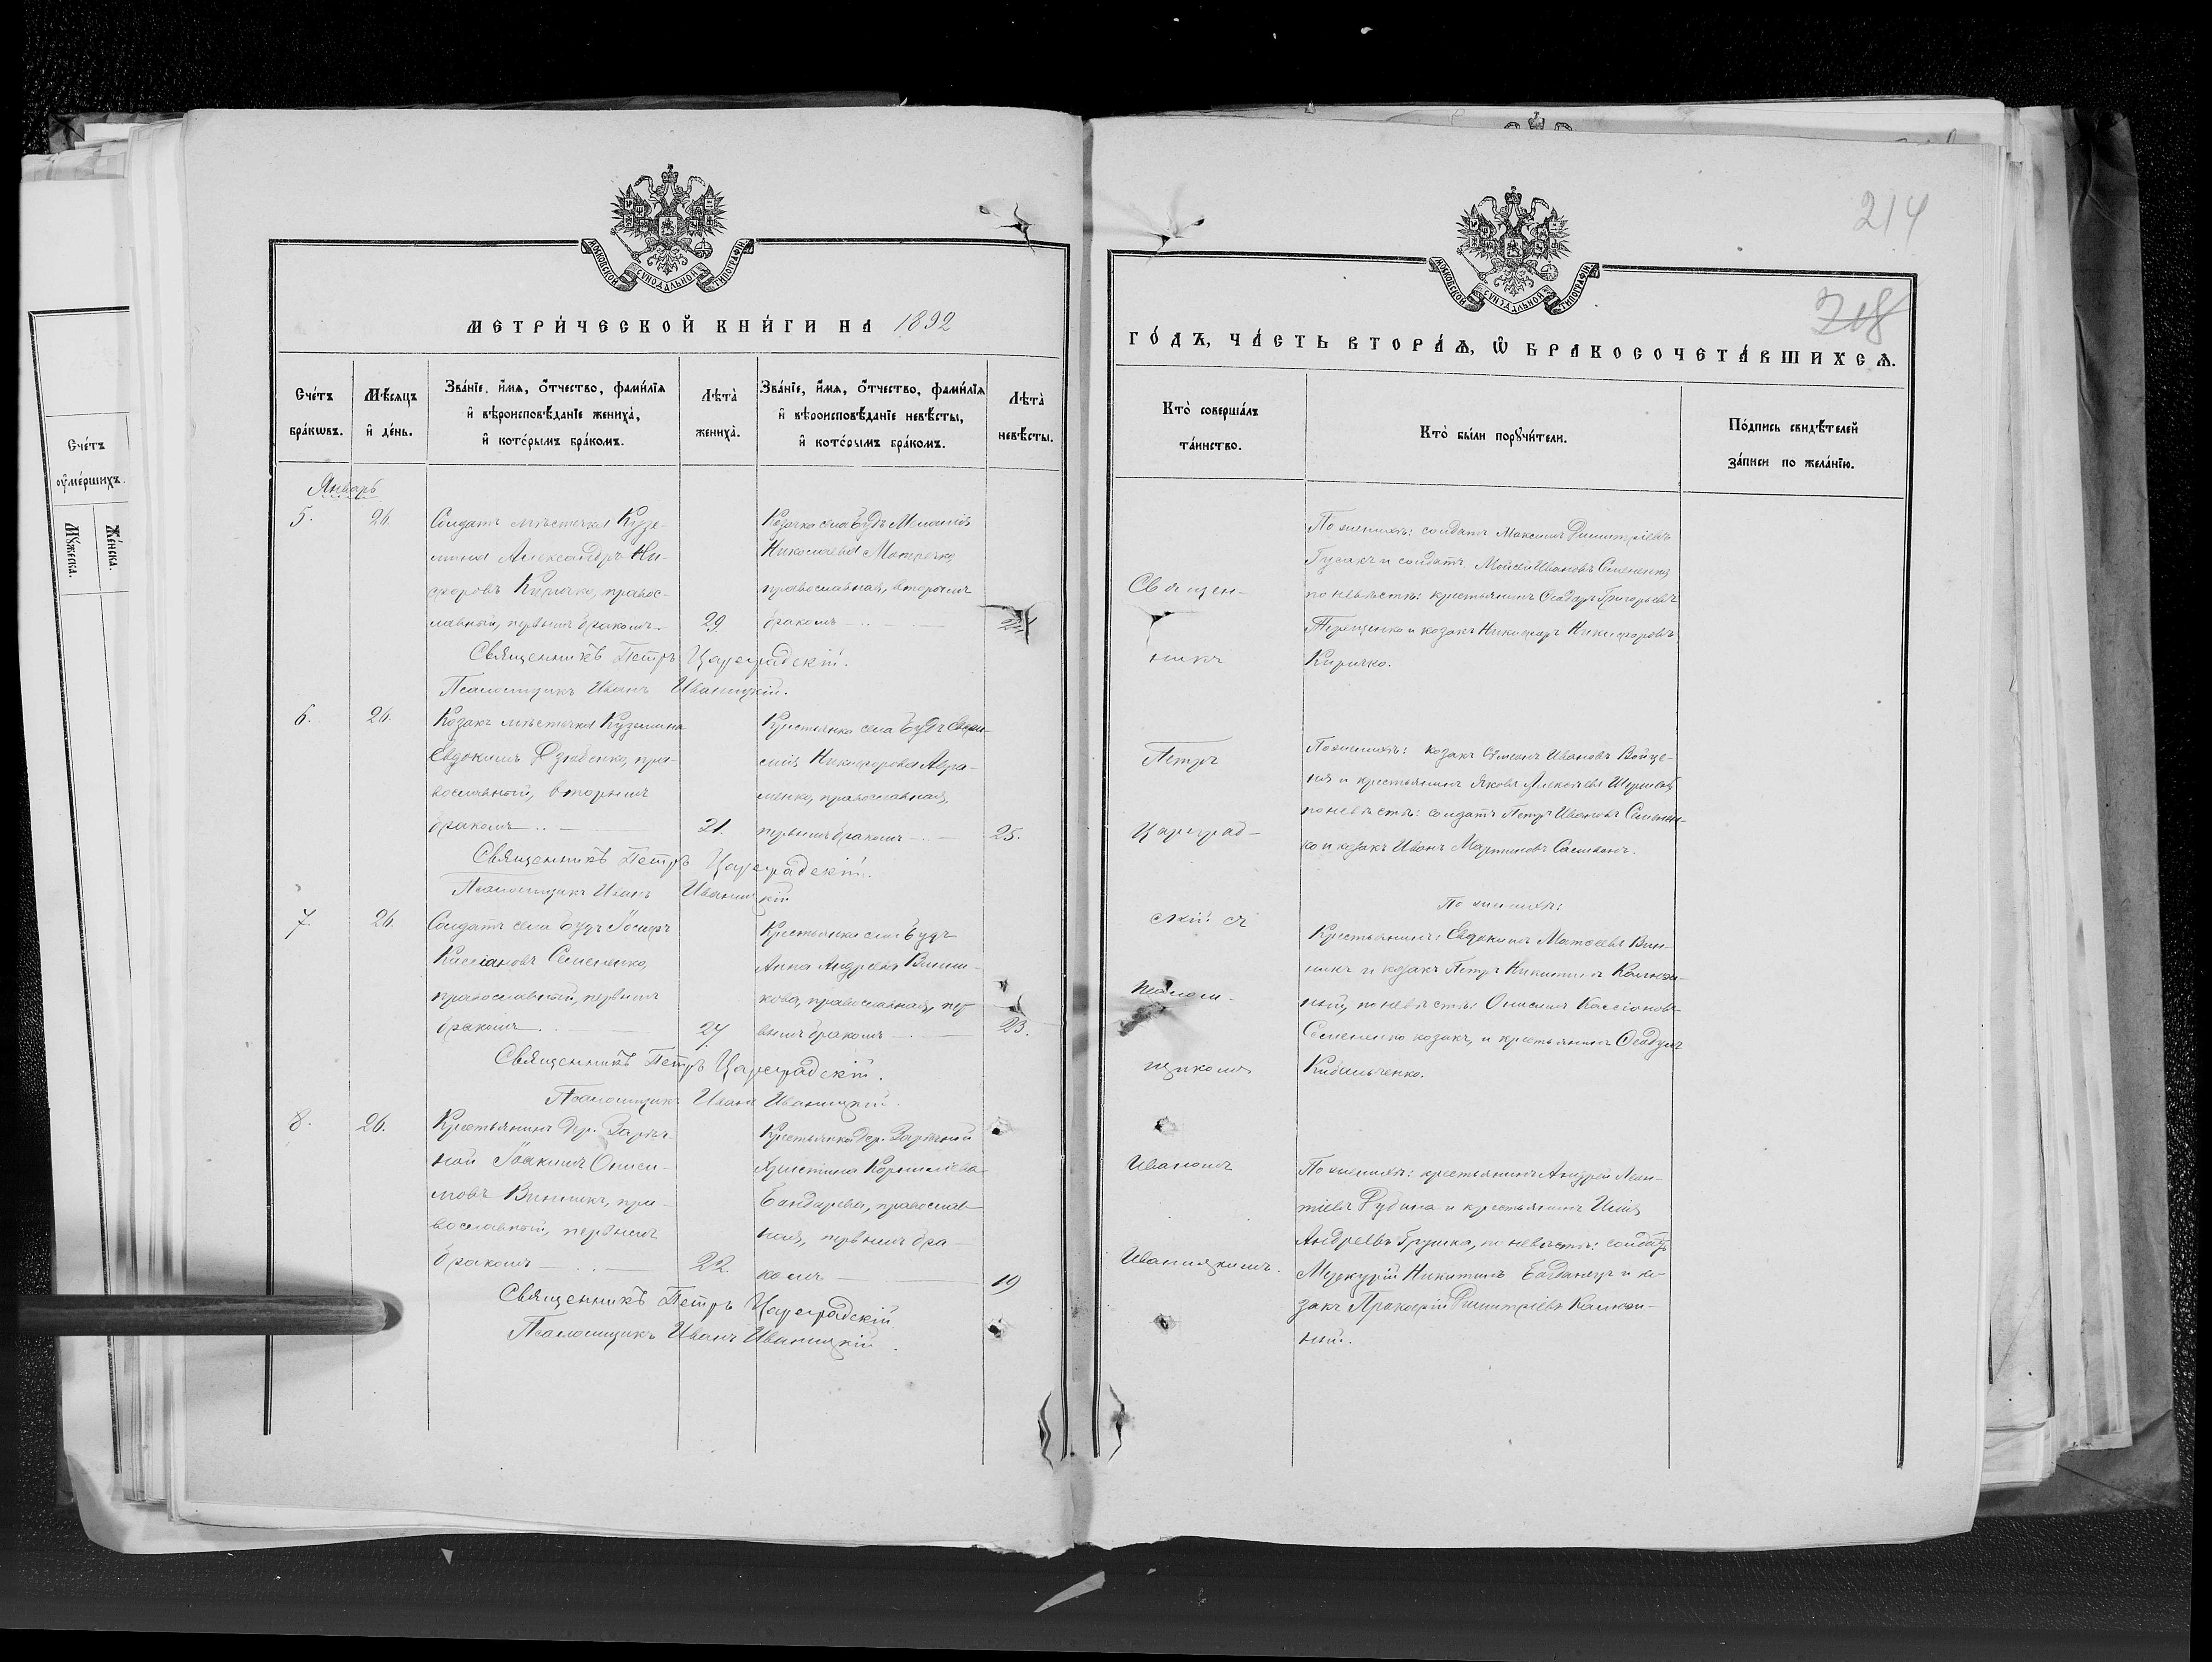 МОСКОВСКОЙ СѴНОДАЛЬНОЙ ТИПОГРАФІИ
МЕТРИ́ЧЕСКОЙ КНИ́ГИ НА 1892
Сче́тъ бра́кωвъ.
Мѣ́сяцъ и҆ де́нь.
Зва́нїе, и҆́мѧ, ѻ҆́тчество, фами́лїѧ
и҆ вѣроисповѣ́данїе жениха̀,
и҆ кото́рымъ бра́комъ.
Лѣ́та̀ жениха̀.
Зва́нїе, и҆́мѧ, ѻ҆́тчество, фами́лїѧ
и҆ вѣроисповѣ́данїе невѣ́сты,
и҆ кото́рымъ бра́комъ.
Лѣ́та̀ невѣ́сты.
Январь
5.
26.
Солдатъ мѣстечка Кузе-
мина Александръ Ни-
форовъ Киричко, правос-
лавный, первымъ бракомъ.
29
Козачка села Будъ Меланія
Николаева Матречко,
православная, вторымъ
бракомъ
Священникъ Петръ Цареградскій.
Псаломщикъ Иванъ Иваницкій.
6.
26.
Козакъ мѣстечка Куземина
Евдокимъ Дзюбенко, пра-
вославный, вторымъ
бракомъ
21.
Крестьянка села Будъ
Никифорова Авра-
менко, православная,
первымъ бракомъ
25.
Священникъ Петръ Цареградскій.
Псаломщикъ Иванъ Иваницкій
7.
26.
Солдатъ села Будъ Іосифъ
Кассіановъ Семененко,
православный, первымъ
бракомъ.
27
Крестьянка села Будъ
Анна Андреева Винни-
кова, православная, пер
вымъ бракомъ
23.
Священникъ Петръ Цареградскій.
Псаломщикъ Иванъ Иваницкій.
8.
26.
Крестьянинъ дер. Зарѣч-
ной Іоакимъ Ониси-
мовъ Винникъ, пра-
вославный, первымъ
бракомъ
22.
Крестьянка дер. Зарѣчной
Христина Корниліева
Бондарева, православ-
ная, первымъ бра-
комъ
19
Священникъ Петръ Цареградскій
Псаломщикъ Иванъ Иваницкій.
Сче́тъ
оу҆ме́ршихъ.
Мꙋ́жеска.
Же́нска.
214
МОСКОВСКОЙ СѴНОДАЛЬНОЙ ТИПОГРАФІИ
ГО́ДЪ, ЧА́СТЬ ВТОРА́Ѧ, Ѡ҆ БРАКОСОЧЕТА́ВШИХСѦ.
Кто̀ соверша́лъ
та́инство.
Кто̀ бы́ли порꙋчи́тели.
По́дпись свидѣ́телей
за́писи по жела́нїю.
Священ-
никъ
Петръ
Цареград-
скій съ
псалом-
щикомъ
Иваномъ
Иваницкимъ.
По женихѣ: солдатъ Максимъ Димитріевъ
Гусакъ и солдатъ Мойсей Ивановъ Семененко,
по невѣстѣ: крестьянинъ Григорьевъ
Терещенко и козакъ Никифоръ Никифоровъ
Киричко.
По женихѣ: козакъ Ивановъ Войце-
ня и крестьянинъ Яковъ Алексѣевъ
по невѣстѣ: солдатъ Петръ Ивановъ Семенен-
ко и козакъ Иванъ Мартиновъ
По женихѣ:
Крестьянинъ: Евдокимъ Матѳеевъ Вин-
никъ и козакъ Петръ Никитинъ Калюж-
ный, по невѣстѣ: Онисимъ Кассіановъ
Семененко козакъ, и крестьянинъ
Кибальченко.
По женихѣ: крестьянинъ Андрей Леон-
тіевъ Дубина и крестьянинъ Илія
Андреевъ Грушка, по невѣстѣ: солдатъ
Меркурій Никитинъ Богданецъ и ко-
закъ Прокофій Димитріевъ Калюж-
ный.